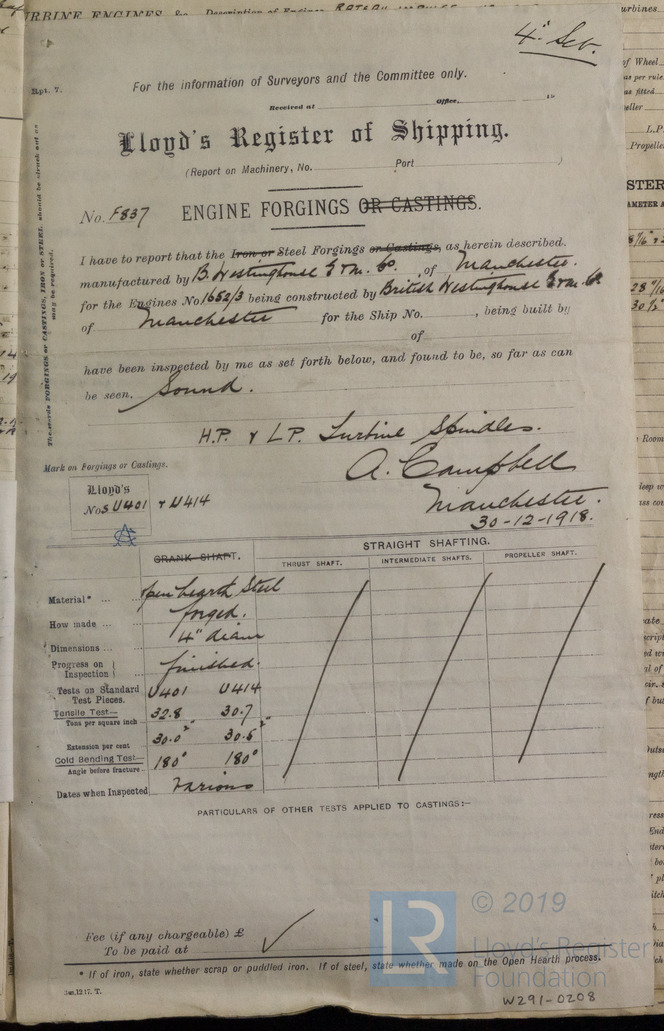 TURBINE ENGINES
4" Set.
Rpt. 7.
For the information of Surveyors and the Committee only.
Received at Office, 19
Lloyd's Register of Shipping.
(Report on Machinery, No. Port )
No. F837 ENGINE FORGINGS OR CASTINGS.
The words FORGINGS or CASTINGS, IRON or STEEL should be struck out as may be required.
I have to report that the Iron or Steel Forgings or Castings, as herein described.
manufactured by B. Westinghouse E & M. Co. of Manchester.
for the Engines No 1652/3 being constructed by British Westinghouse E & M. Co.
of Manchester for the Ship No. , being built by
of
have been inspected by me as set forth below, and found to be, so far as can
be seen, Sound.
H.P. & L.P. Turbine Spindles.
A. Campbell
Manchester.
30-12-1918.
Mark on Forgings or Castings.
Lloyd's
Nos U401 & U414
CRANK SHAFT. STRAIGHT SHAFTING.
THRUST SHAFT. INTERMEDIATE SHAFTS. PROPELLER SHAFT.
Material* Open hearth Steel
How made forged.
Dimensions 4" diam
Progress on Inspection finished.
Tests on Standard Test Pieces. U401 U414
Tensile Test— Tons per square inch 32.8 30.7
Extension per cent 30.0 30.5
Cold Bending Test— Angle before fracture 180° 180°
Dates when Inspected Various
PARTICULARS OF OTHER TESTS APPLIED TO CASTINGS:—
Fee (if any chargeable) £
To be paid at
* If of iron, state whether scrap or puddled iron. If of steel, state whether made on the Open Hearth process.
© 2019
LR
Lloyd's Register
Foundation
W291-0208